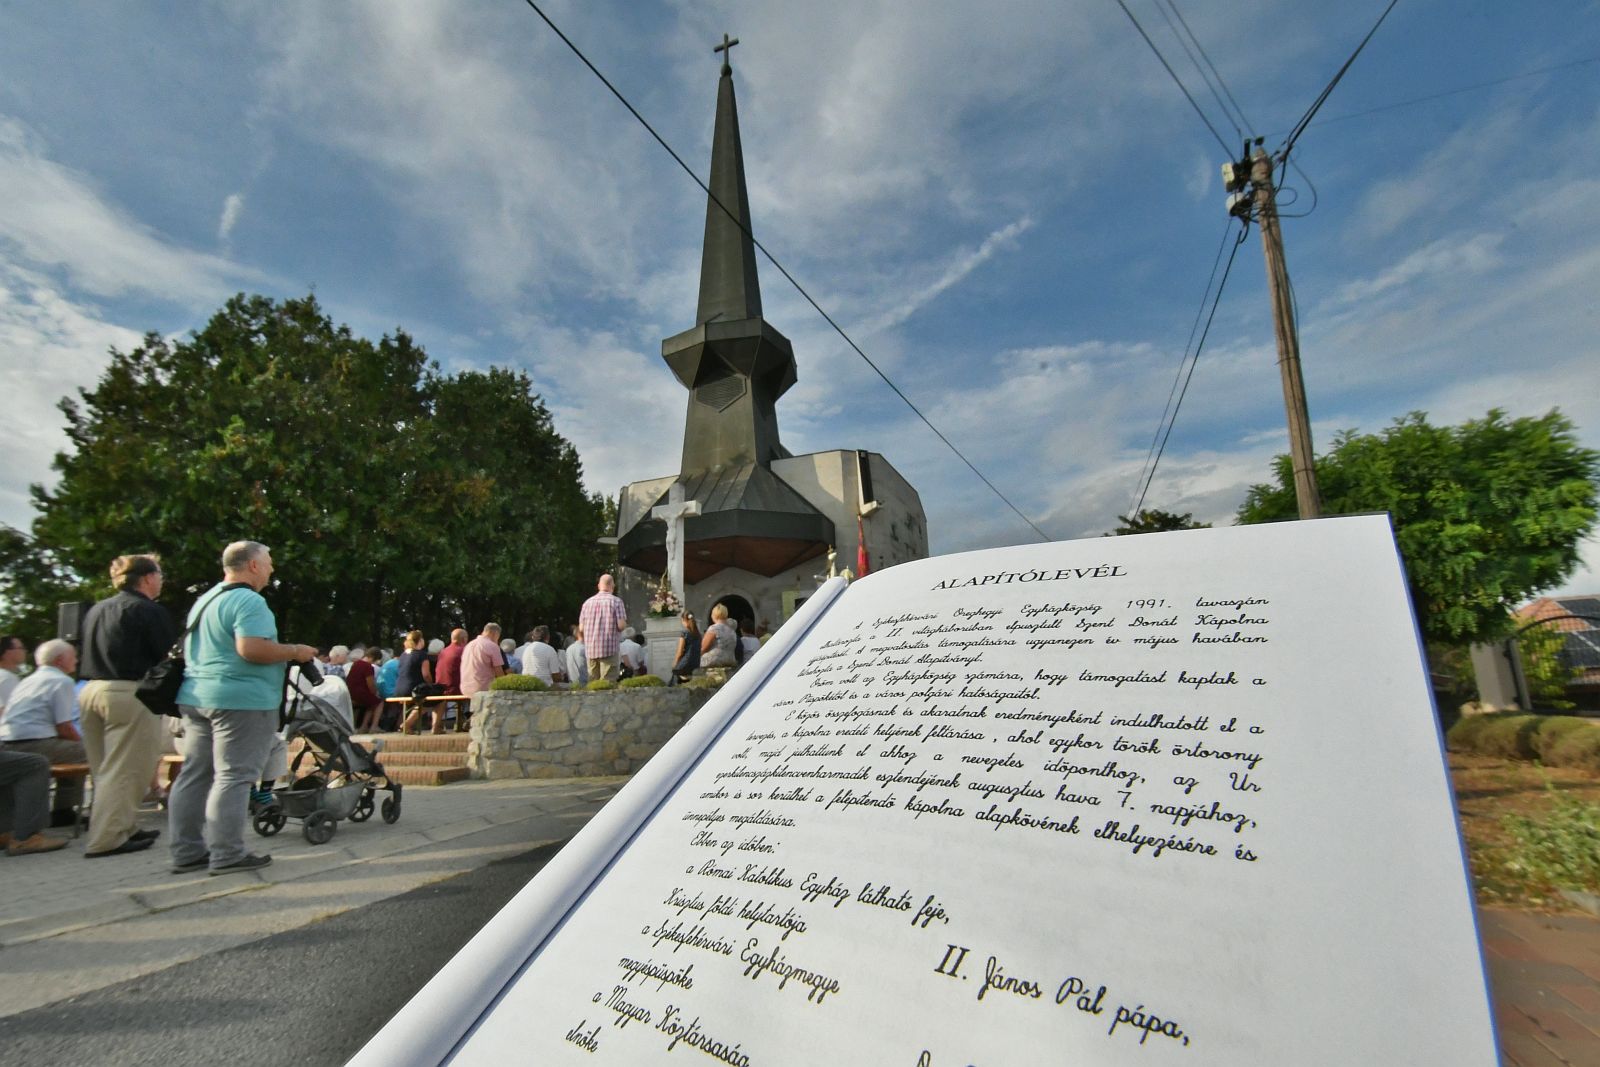 ALAPÍTÓLEVÉL
A Székesfehérvári Öreghegyi Egyházközség 1991. tavaszán
elhatározta a II. világháborúban elpusztult Szent Donát Kápolna
újjáépítését. A megvalósítás támogatására ugyanezen év május havában
létrehozta a Szent Donát Alapítványt.
Öröm volt az Egyházközség számára, hogy támogatást kaptak a
város Püspökétől és a város polgári hatóságaitól.
E közös összefogásnak és akaratnak eredményeként indulhatott el a
tervezés, a kápolna eredeti helyének feltárása , ahol egykor török őrtorony
volt, majd juthattunk el ahhoz a nevezetes időponthoz, az Úr
ezerkilencszázkilencvenharmadik esztendejének augusztus hava 7. napjához,
amikor is sor kerülhet a felépítendő kápolna alapkövének elhelyezésére és
ünnepélyes megáldására.
Ebben az időben:
a Római Katolikus Egyház látható feje,
Krisztus földi helytartója
II. János Pál pápa,
a Székesfehérvári Egyházmegye
megyéspüspöke
a Magyar Köztársaság
elnöke